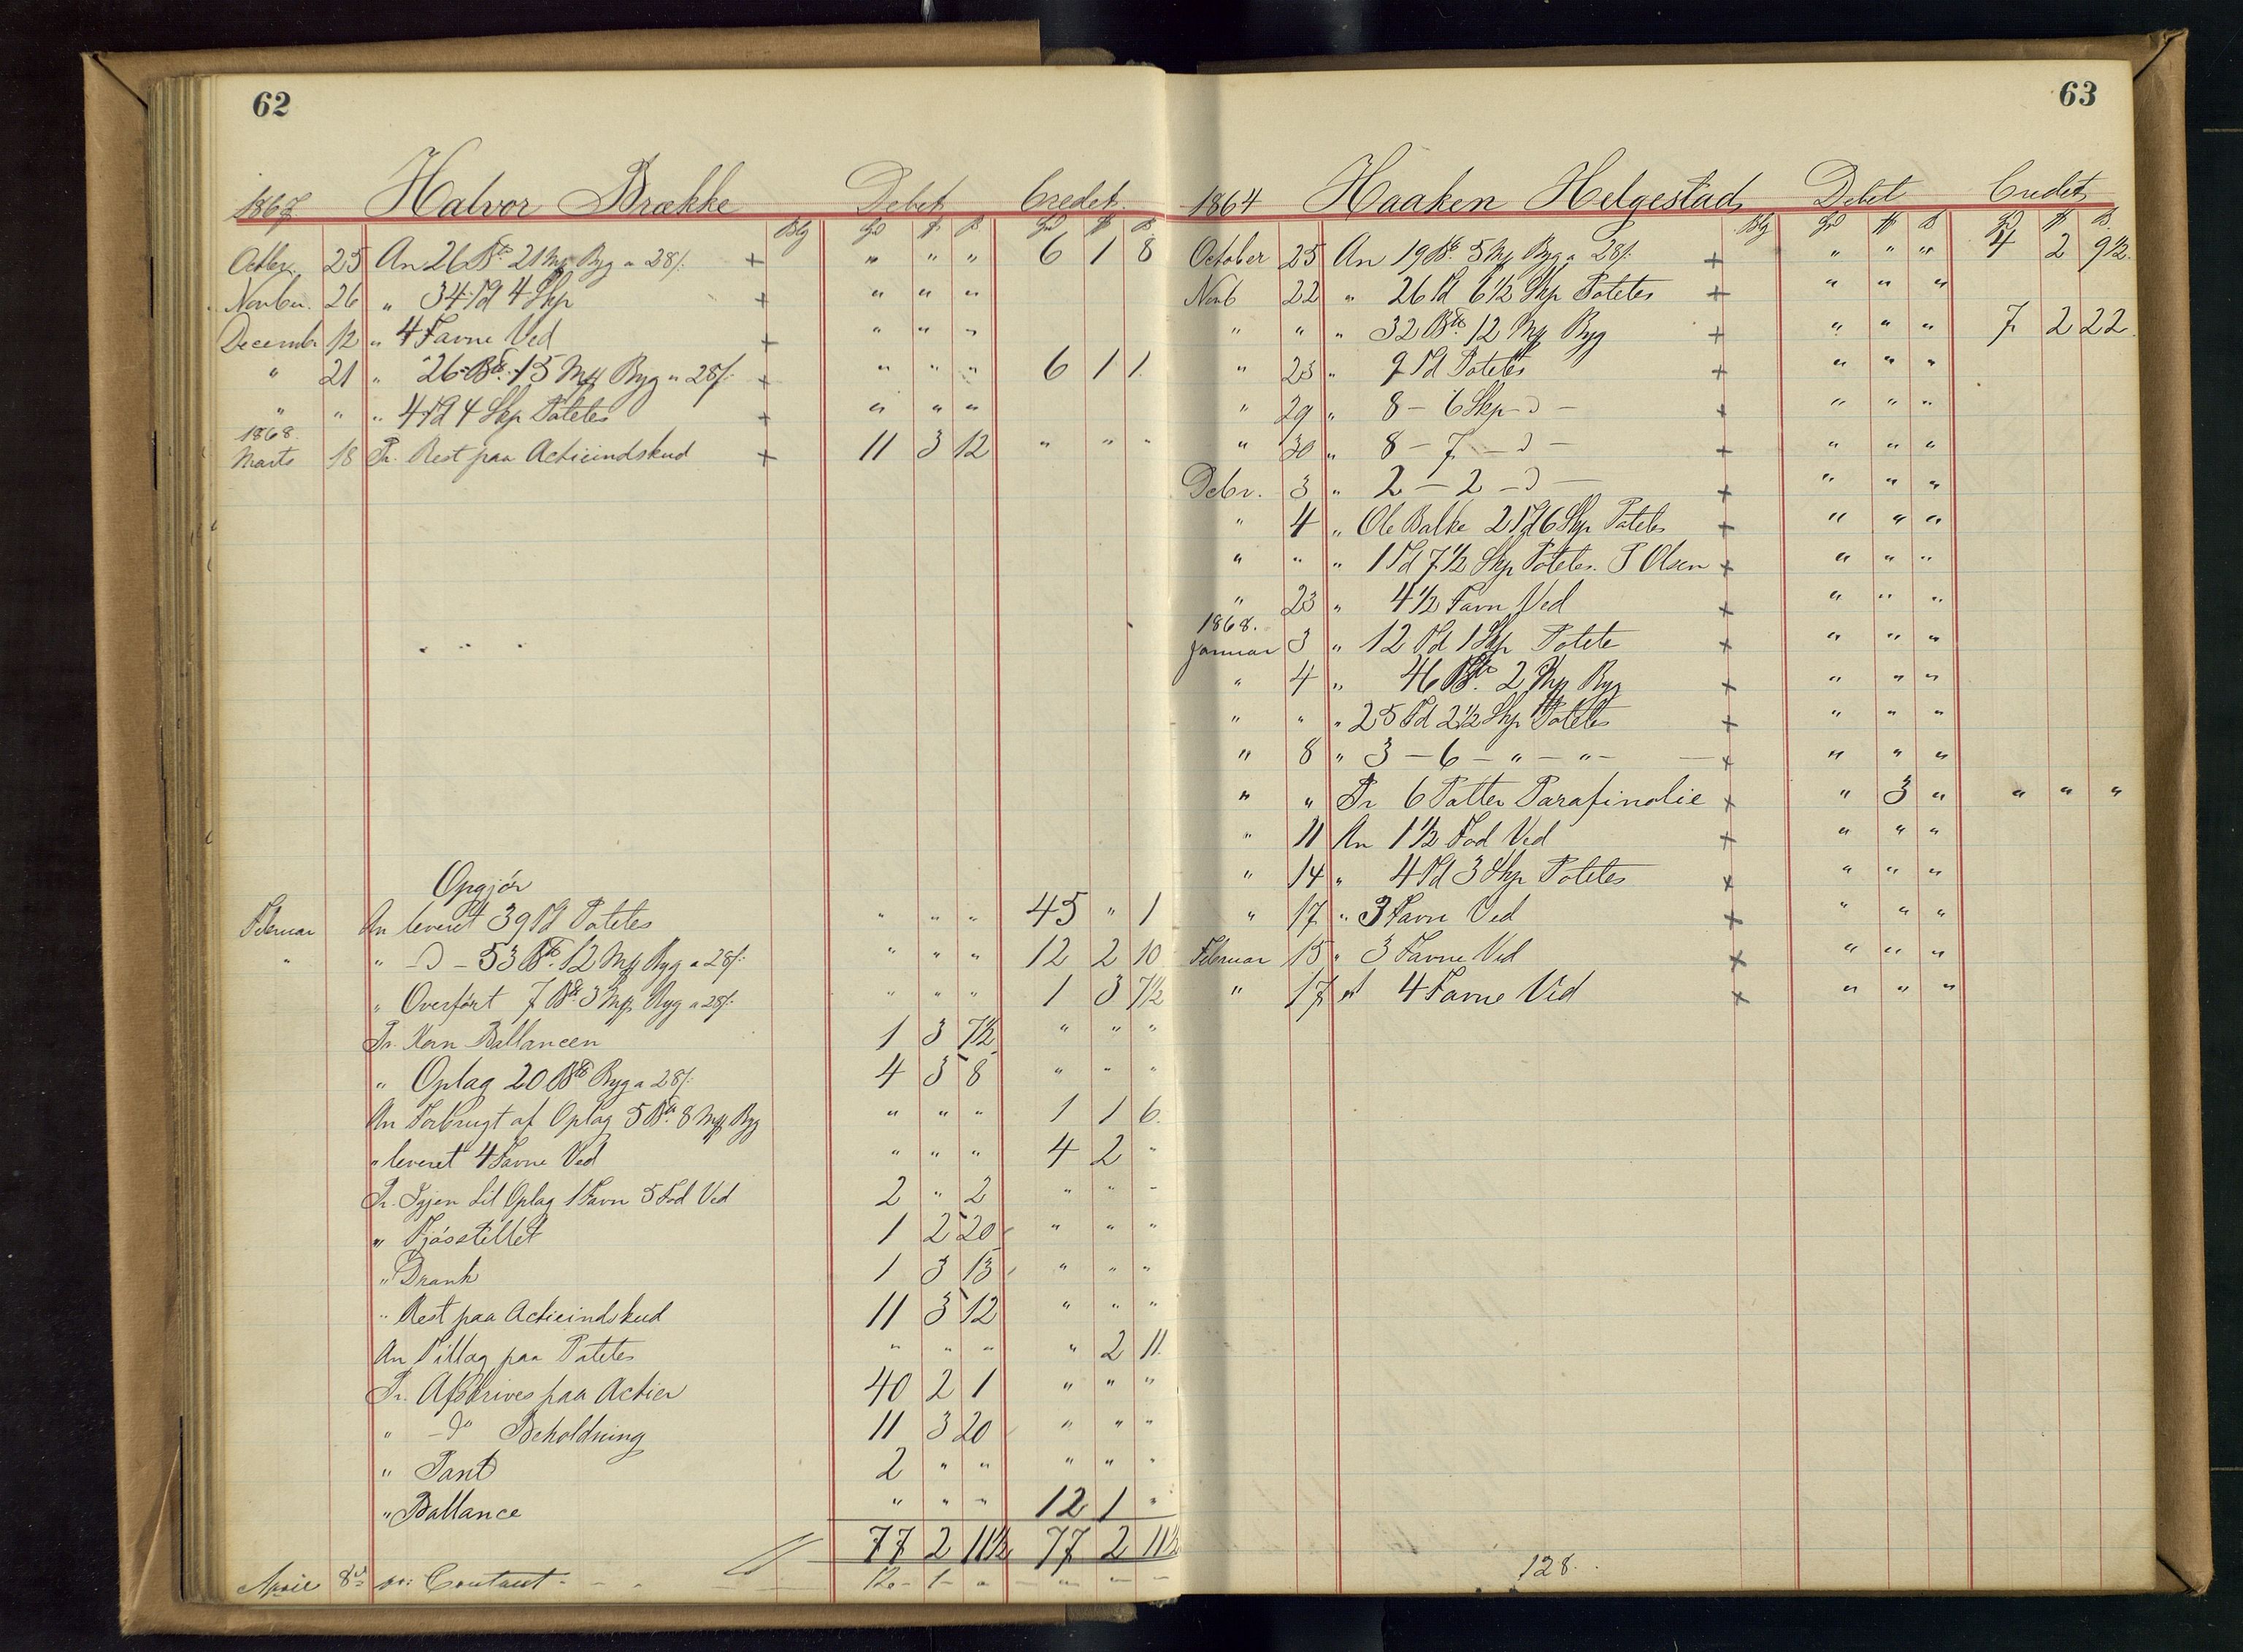 62
1867. Halvor Brække Debet Credet.
Blg
Octbr. 25 An 26 21 Mk Byg a 28/. + " " " 6 1 8
Novbr. 26 " 34 Td 4 Skp + " " "
Decembr 12 " 4 Favne Ved + " " "
" 21 " 26 15 Mk Byg a 28/. + " " " 6 1 1
" " " 4 Td 4 Skp Potetes + " " "
1868.
Marts 18 Pr. Rest paa Actieindskud + 11 3 12 " " "
Opgjör
Februar An leveret 39 Td Potetes " " " 45 " 1
" " - D - 53 12 Mk Byg a 28/. " " " 12 2 10
" Overfört 7 3 Mk Byg a 28/. " " " 1 3 7½
Pr. Korn Ballancen 1 3 7½ " " "
" Oplag 20 Byg a 28/. 4 3 8 " " "
An Forbrugt af Oplag 5 8 Mk Byg " " " 1 1 6.
" leveret 4 Favne Ved " " " 4 2 "
Pr. Igjen til Oplag 1 Favn 5 Fod Ved 2 " 2 " " "
" Fjösstellet 1 2 20 " " "
" Drank 1 3 15 " " "
" Rest paa Actieindskud 11 3 12 " " "
An Tillag paa Potetes " " " " 2 11.
Pr. Afskrives paa Actier 40 2 1 " " "
" - do Beholdning 11 3 20 " " "
" Pant 2 " " " " "
" Ballance " " " 12 1 "
77 2 11½ 77 2 11½
April 8de pr: Contant - - - 12 - 1 - " - " - " -
63
1864 Haaken Helgestad Debet Credet
Blg
October 25 An 19 5 Mk Byg a 28/. + " " " 4 2 9½.
Novb 22 " 26 Td 6½ Skp Potetes + " " "
" " " 32 12 Mk Byg + " " " 7 2 22.
" 23 " 9 Td Potetes + " " "
" 29 " 8 - 6 Skp - D - + " " "
" 30 " 8 - 7 - D - + " " "
Debr. 3 " 2 - 2 - D - + " " "
" 4 " Ole Balke 2 Td 6 Skp Potetes + " " "
" " " 1 Td 7½ Skp Potetes. P Olsen + " " "
" 23 " 4½ Favn Ved + " " "
1868.
Januar 3 " 12 Td 1 Skp Potete + " " "
" 4 " 46 2 Mk Byg + " " "
" " " 25 Td 2½ Skp Potetes + " " "
" 8 " 3 - 6 - " - " - - + " " "
" " Pr 6 Potter Parafinolie + " 3 " " " "
" 11 An 1½ Fod Ved + " " "
" 14 " 4 Td 3 Skp Potetes + " " "
" 17 " 3 Favne Ved + " " "
Februar 15 " 3 Favne Ved + " " "
" 17 " 4 Favne Ved + " " "
128.